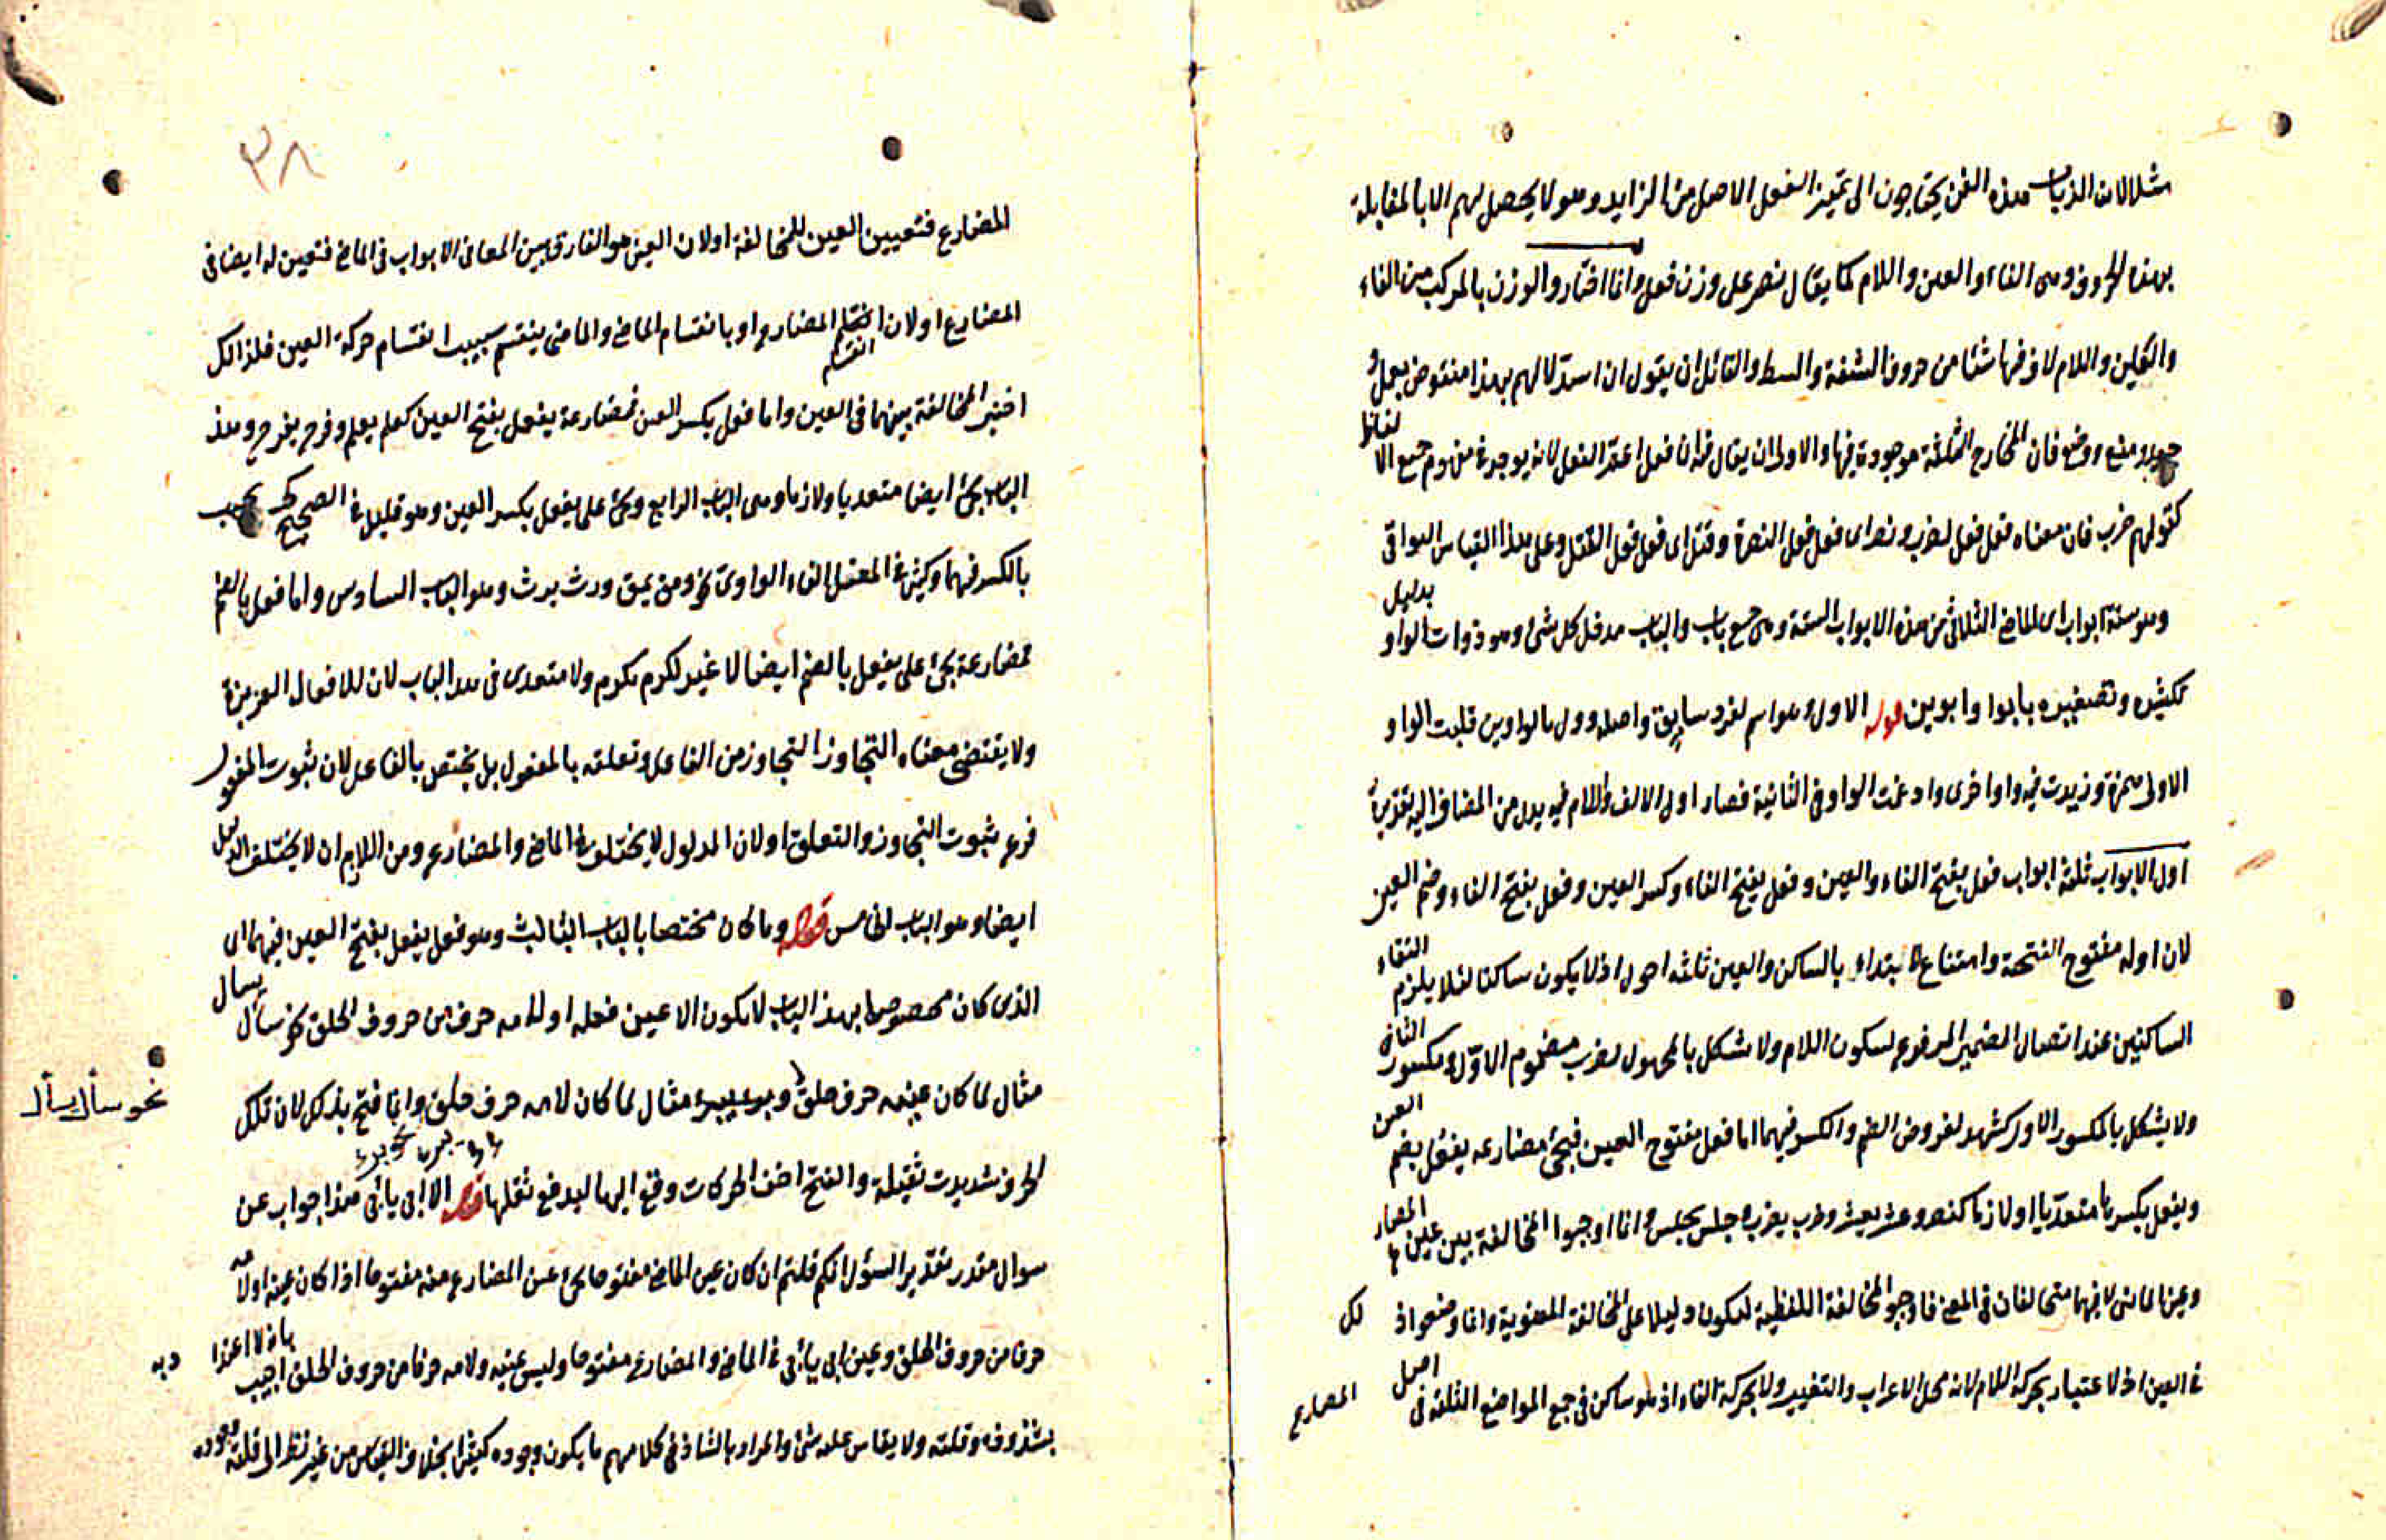 مثلا لان ارباب هذه الفن يحتاجون الى تميز الفعل الاصل من الزايد وهو لا يحصل لهم الا بالمقابلة
بهذه الحروف وهى الفاء والعين واللام كما يقال نصر على وزن فعل وانما اختار والوزن بالمركب من الفاء
والعين واللام لان فيها شئا من حروف الشفة والوسط ولقائل ان يقول ان استدلالهم بهذا منقوض بعمل
ومنع ووضع فان المخارج الثلثة موجودة فيها والاولى ان يقال فى ان فعل اعم الفعل لانه يوجد فى مفهوم جميع الالفاظ
كقولهم ضرب فان معناه فعل فعل لضرب ونصر اى فعل فعل النصرة وقتل اى فعل فعل القتل وعلى هذا القياس البواقى
وهو ستة ابواب اى الماضى الثلاثى من هذه الابواب الستة وهى جمع باب والباب مدخل كل شئ وهو ذوات الواو بدليل
تكثيره وتصغيره بابوا وابوين قوله الاول وهو اسم لفرد سابق واصله وول بالواوين قلبت الواو
الاولى همزة وزيدت فيه واوا اخرى وادغمت الواو فى الثانية فصار اول الالف واللام فيه بدل من المضاف اليه تقديره
اول الابواب ثلثة ابواب فعل بفتح الفاء والعين وفعل بفتح الفاء وكسر العين وفعل بفتح الفاء وضم العين
لان اوله مفتوح الفتحة وامتناع الابتداء بالساكن والعين ثلثة احول اذ لا يكون ساكنا لئلا يلزم التقاء
الساكنين عند اتصال الضمير المرفوع لسكون اللام ولا يشكل بالمجهول لضرب مضموم الاول ومكسور الثانى
ولا يشكل بالمكسور الاول كشهد لفروض الضم والكسر فيهما اما فعل مفتوح العين فيجئ مضارعه يفعل بضم العين
ويفعل بكسرها متعديا او لازما كنصر وضرب يضرب وجلس يجلس وانما اوجبوا المخالفة بين عين المضارع
وعين الماضى لانهما متخالفان فى المعنى فاوجبوا المخالفة اللفظية ليكون دليلا على المخالفة المعنوية وانما وضعوا ذلك
فى العين اذ لا عتبار بحركة اللام لانه محل الاعراب والتغيير ولا بحركة الفاء اذ هو ساكن فى جميع المواضع الثلثة فى اصل المضارع
٣٨
المضارع فتعيين العين للمخالفة اولان العين هو الفارق بين المعانى الابواب فى الماضى فتعين له ايضا فى
المضارع اولان انقسام المضارع او بانقسام الماضى والماضى ينقسم بسبب انقسام حركة العين فلذالك
اختير المخالفة بينهما فى العين واما فعل بكسر العين فمضارعه يفعل بفتح العين كعلم يعلم وفرح يفرح وهذ
الباب يجئ ايضا متعديا ولازما وهى الباب الرابع ويجئ على يفعل بكسر العين وهو قليل فى الصحيح كحسب يحسب
بالكسر فيهما وكثير فى المعتل الفاء الواوى نحو ومق يمق ورث يرث وهو الباب السادس واما فعل بالضم
فمضارعه يجئ على يفعل بالضم ايضا لا غير ككرم يكرم ولا متعدى فى هذ الباب لان للافعال الغريزة
ولا يقتضى معناه التجاوز التجاوز من الفاعل وتعلقه بالمفعول بل يختص بالفاعل لان ثبوت المفعول
فرع ثبوت التجاوز والتعلق اولان المدلول لا يختلف فى الماضى والمضارع ومن اللازم ان لا يختلف الدليل
ايضا وهو الباب الخامس قوله وما كان مختصا بالباب الثالث وهو فعل يفعل بفتح العين فيهما اى
الذى كان مخصوصا بهذ الباب لا يكون الا عين فعله او لامه حرف من حروف الحلق نحو سأل يسأل
نحو سأل يسأل
مثال لما كان عينه حرف حلق وبرء يبرء مثال لما كان لامه حرف حلق وانما فتح بذلك لان تلك
الحروف شديدت ثقيلة والفتح اخف الحركات وفتح اليها ليدفع ثقلها قوله الا ابى يأبى هذا جواب عن
سوال مقدر تقدير السؤل انكم قلتم ان كان عين الماضى مفتوحا يجئ عين المضارع منه مفتوحا اذا كان عينه او لامه
حرفا من حروف الحلق وعين ابى يأبى فى الماضى والمضارع مفتوحا وليس عينه ولامه حرفا من حروف الحلق اجيب
بشذوذه وقلته ولا يقاس عليه شئ والمراد بالشاذ فى كلامهم ما يكون وجوده كثيرا بخلاف القياس من غير نظر الى قلة وجوده